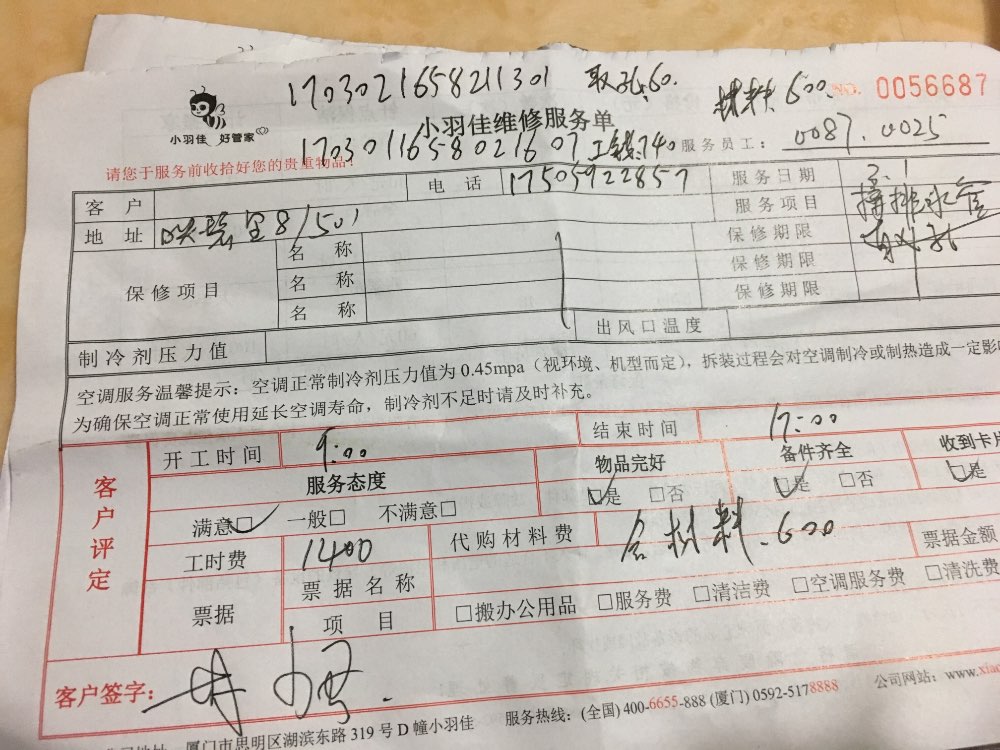 1703021658211301 取孔60. 材料600. NO. 0056687
小羽佳 好管家
小羽佳维修服务单
1703011658021607 工钱740 服务员工： 0087.0025
请您于服务前收拾好您的贵重物品！
客户 电话 17505922857 服务日期 3.1
地址 8/501 服务项目 排水管
保修项目 名称 保修期限
名称 保修期限
名称 保修期限
制冷剂压力值 出风口温度
空调服务温馨提示：空调正常制冷剂压力值为 0.45mpa（视环境、机型而定），拆装过程会对空调制冷或制热造成一定影
为确保空调正常使用延长空调寿命，制冷剂不足时请及时补充。
客户评定
开工时间 9:00 结束时间 17:00
服务态度 物品完好 备件齐全 收到卡片
满意□ 一般□ 不满意□ □是 □否 □是 □否 □是
工时费 1400 代购材料费 含材料.600 票据金额
票据 票据名称
项目 □搬办公用品 □服务费 □清洁费 □空调服务费 □清洗费
客户签字：
厦门市思明区湖滨东路 319 号 D 幢小羽佳 服务热线：(全国) 400-6655-888 (厦门) 0592-5178888 公司网站：www.xiao